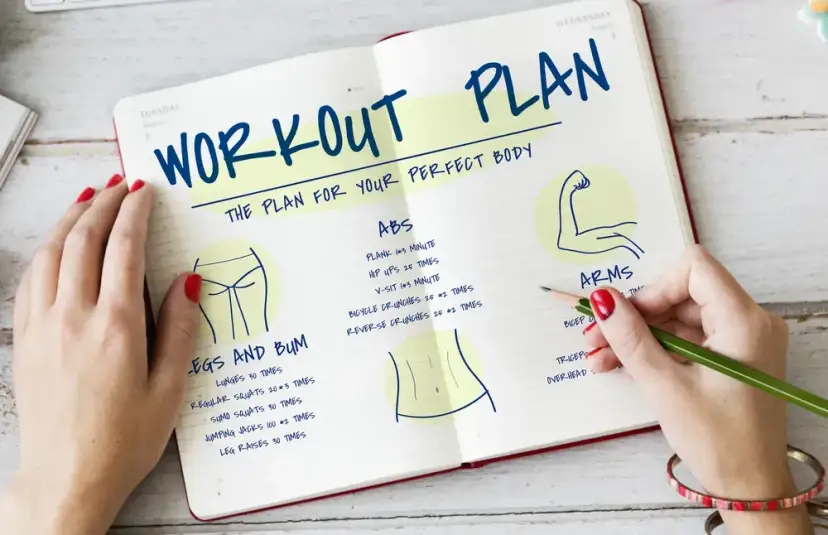 TUESDAY
WEDNESDAY
WORKOUT PLAN
THE PLAN FOR YOUR PERFECT BODY
LEGS AND BUM
LUNGES 30 TIMES
REGULAR SQUATS 20 *3 TIMES
SUMO SQUATS 30 TIMES
JUMPING JACKS 100 *2 TIMES
LEG RAISES 30 TIMES
ABS
PLANK 1*3 MINUTE
HIP UPS 25 TIMES
V-SIT 1*3 MINUTE
BICYCLE CRUNCHES 25 *2 TIMES
REVERSE CRUNCHES 25 *2 TIMES
ARMS
BICEP
TRICEPS
OVERHEAD